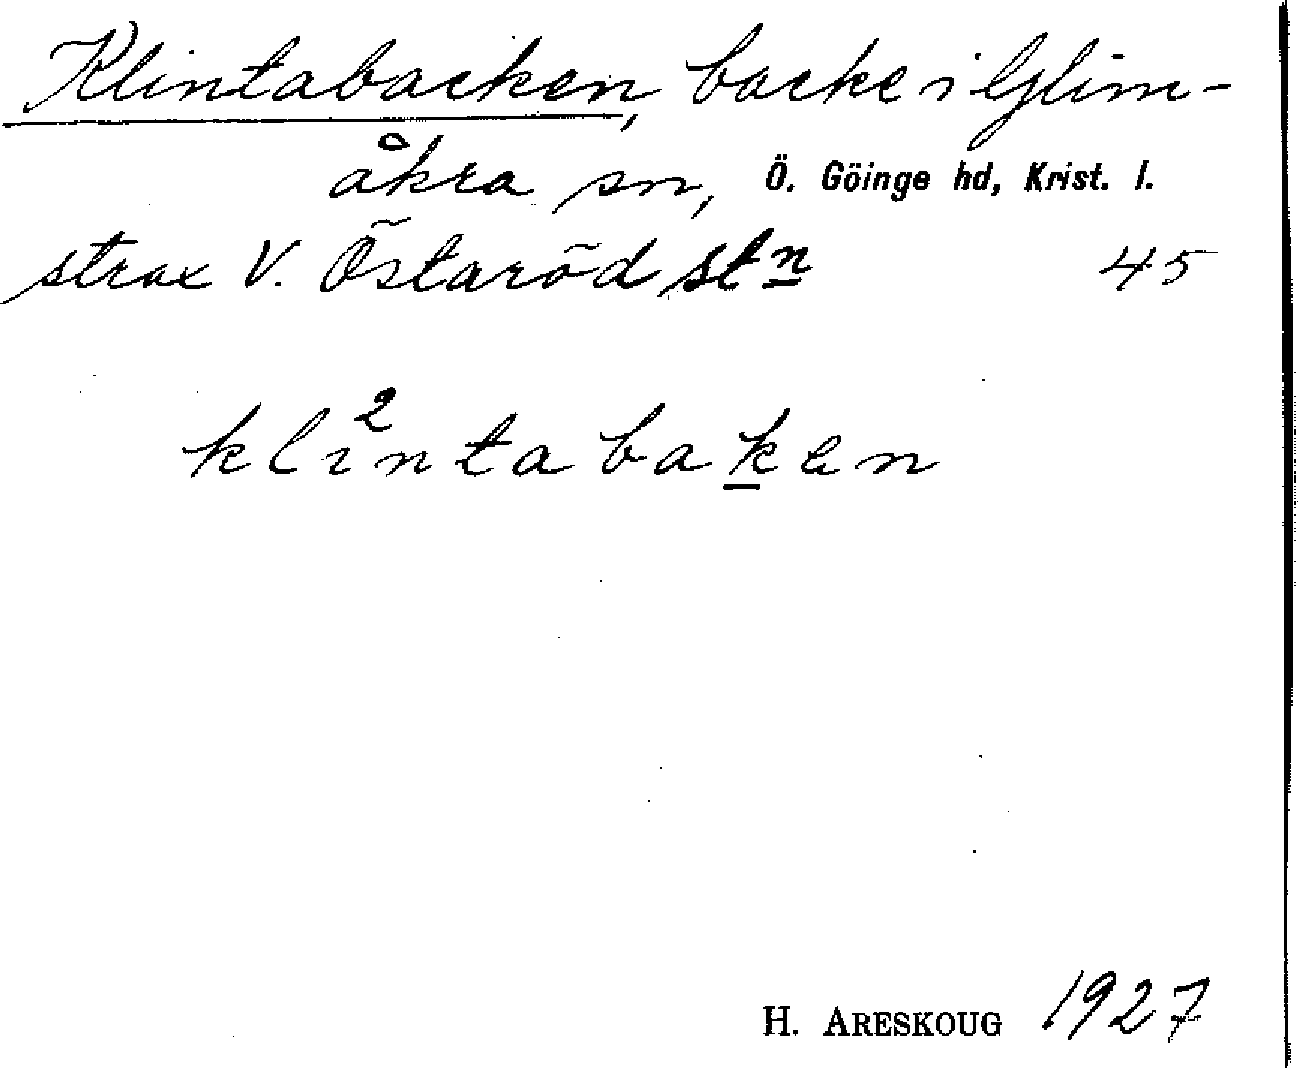 Klintabacken, backe i Glim-
åkra sn, Ö. Göinge hd, Krist. l.
strax V. Östaröd stn 45
kli²ntabaken
H. ARESKOUG 1927